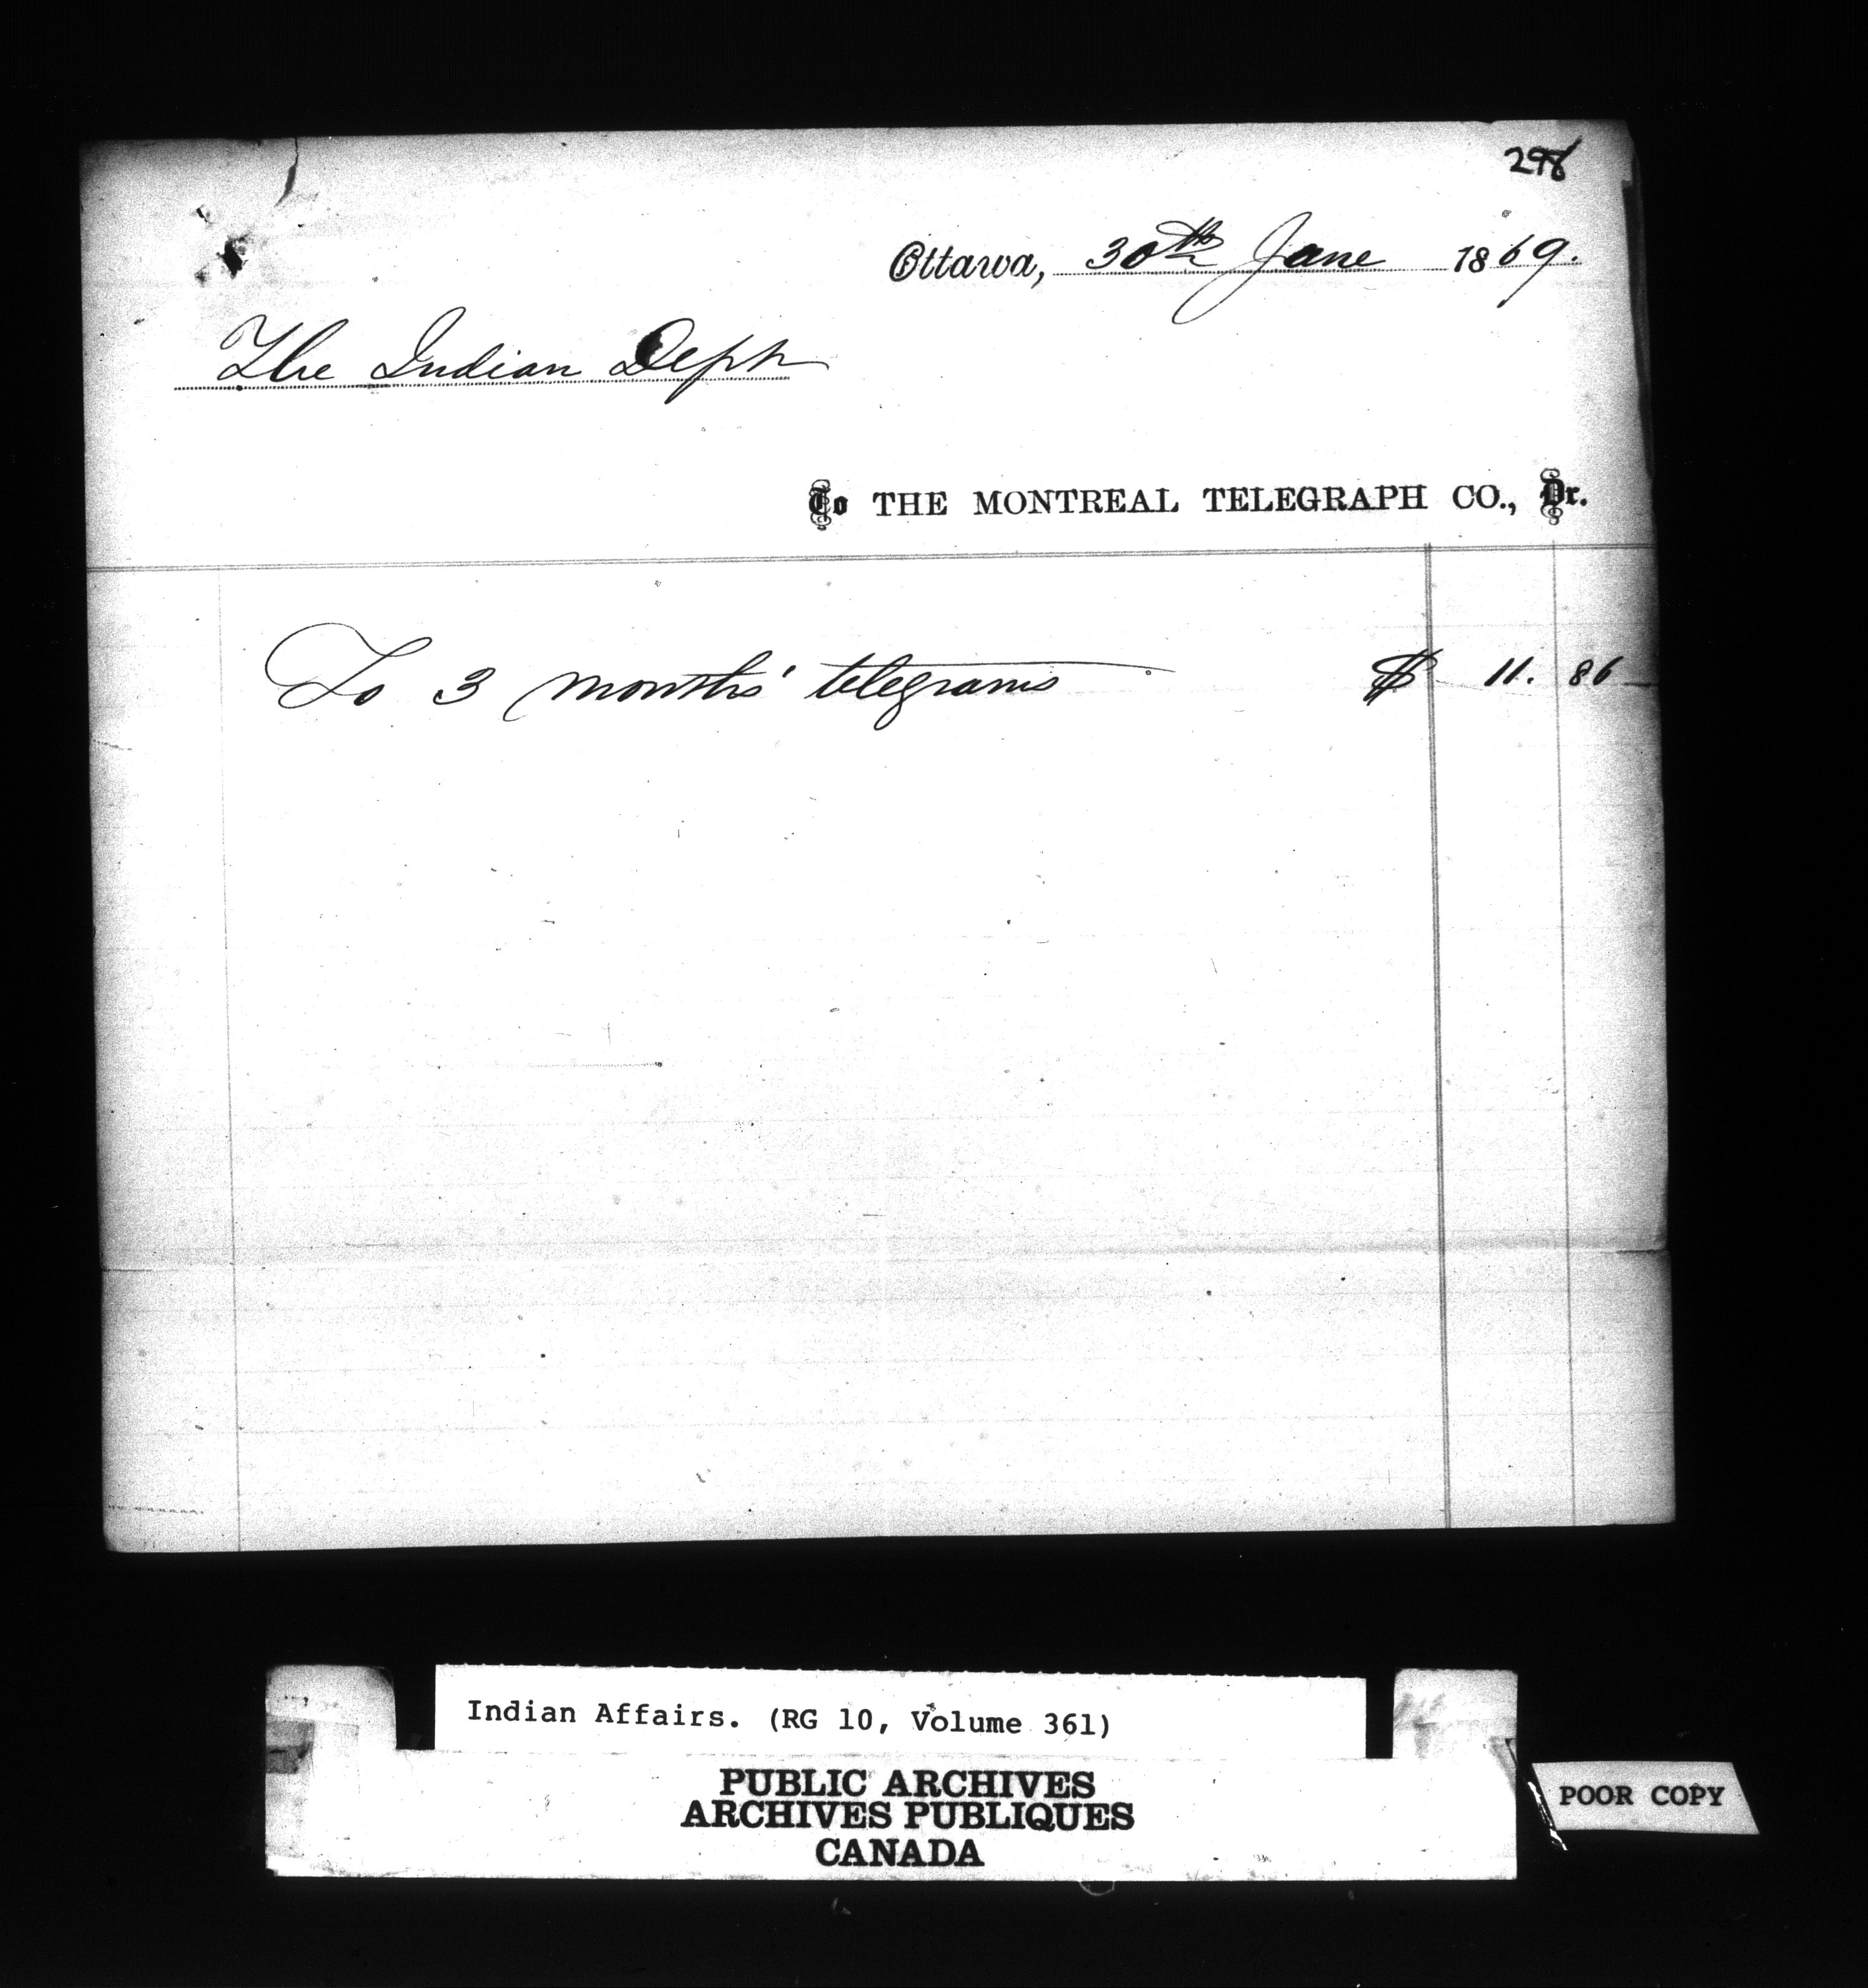 298
Ottawa, 30th June 1869.
The Indian Dept
To THE MONTREAL TELEGRAPH CO., Dr.
To 3 months' telegrams $ 11. 86
Indian Affairs. (RG 10, Volume 361)
PUBLIC ARCHIVES
ARCHIVES PUBLIQUES
CANADA
POOR COPY